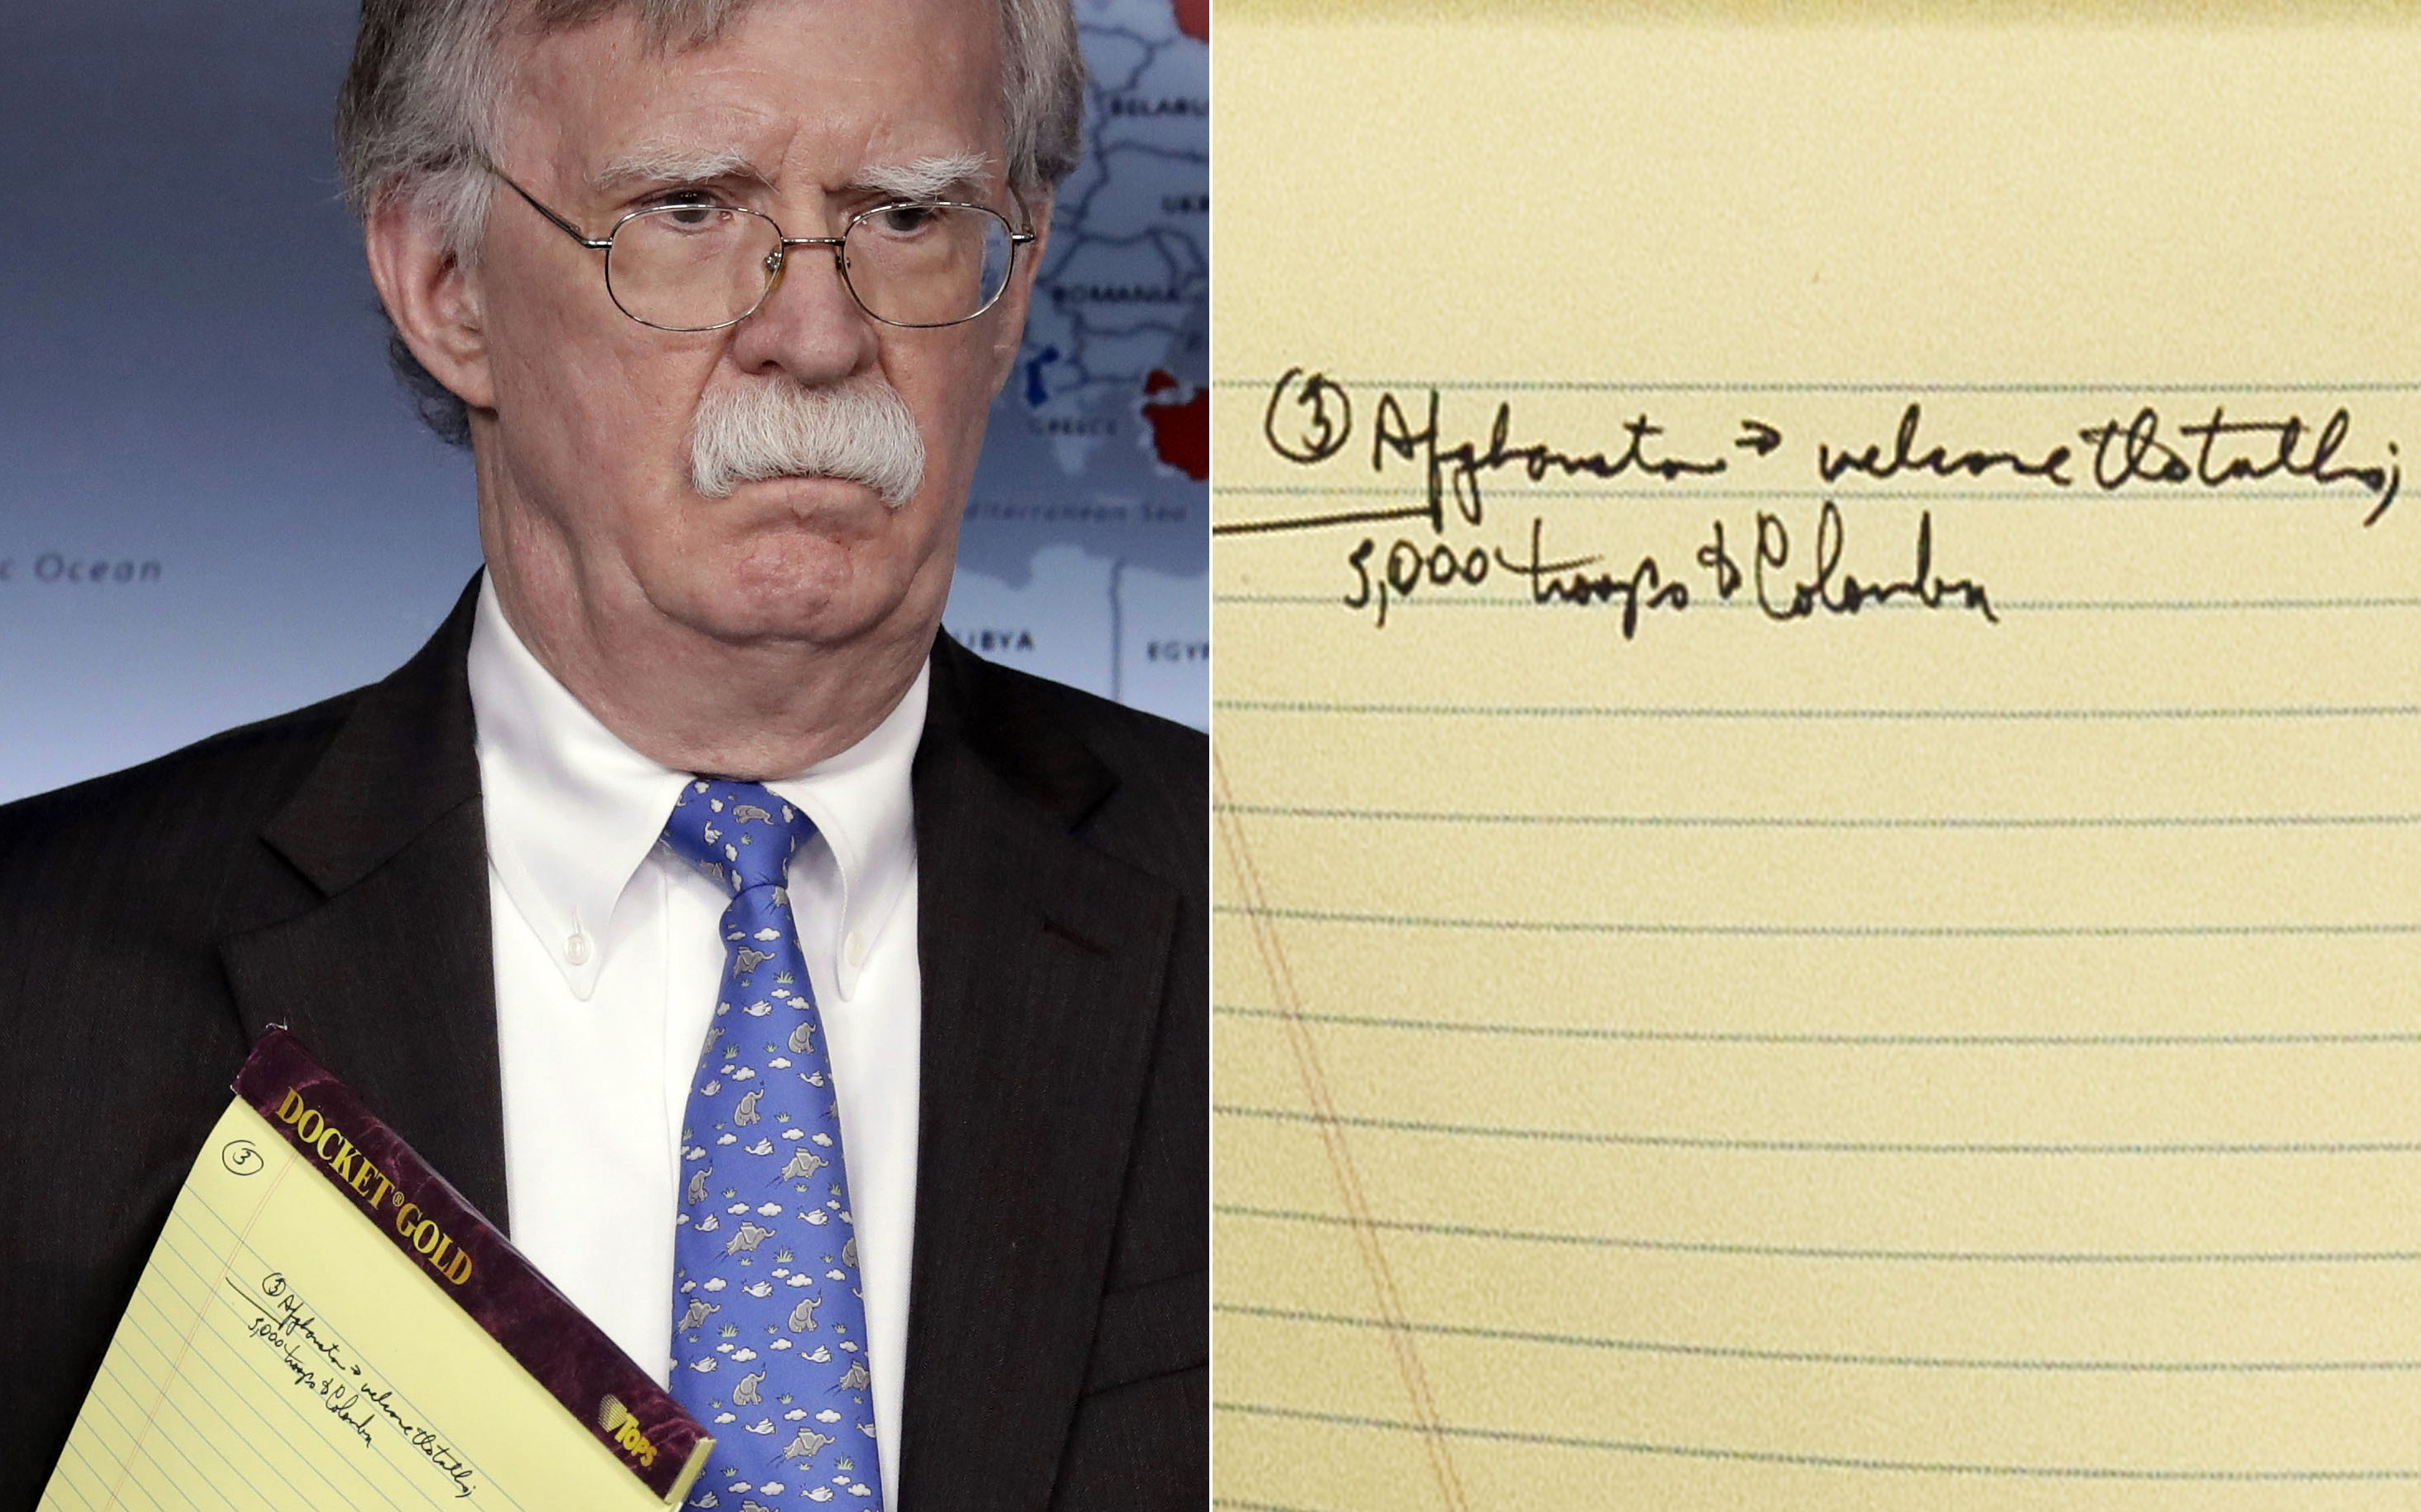 BELARU
UKR
ROMANIA
GREECE
diterranean Sea
c Ocean
IBYA
EGYP
DOCKET® GOLD
TOPS
③
③ Afghanistan → welcome the talks;
5,000 troops to Colombia
③ Afghanistan → welcome the talks;
5,000 troops to Colombia